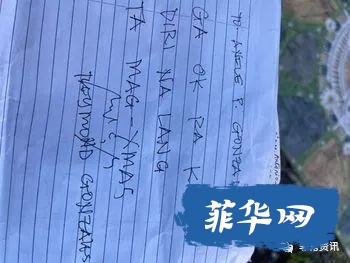 P. GONZA
GA OK PA K
DIRI NA LANG
TA MAG-XMAS
RAYMOND GONZALES
菲华网
资讯